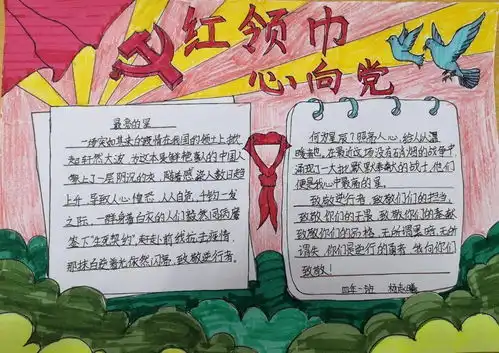 红领巾
心向党
最亮的星
一场突如其来的疫情在我国的领土上掀
起轩然大波，为这本是鲜艳的中国人
蒙上了一层阴沉的灰，随着感染人数日趋
上升，导致人心惶恐，人人自危，千钧一发
之际，一群身着白衣的人们毅然同死神
签下“生死契约”，赶赴前线抗击疫情，
那抹白逆着光依然闪亮，致敬逆行者。
何为星辰？照亮人心，给人以温
暖者也，在最近这场没有硝烟的战争中
涌现了一大批默默奉献的战士，他们
便是我心中最亮的星。
致敬逆行者，致敬你们的担当，
致敬你们的无畏，致敬你们的奉献
致敬你们的风格，无所谓黑暗，无所
谓失，你们是逆行的勇者，我向你们
致敬！
四年一班